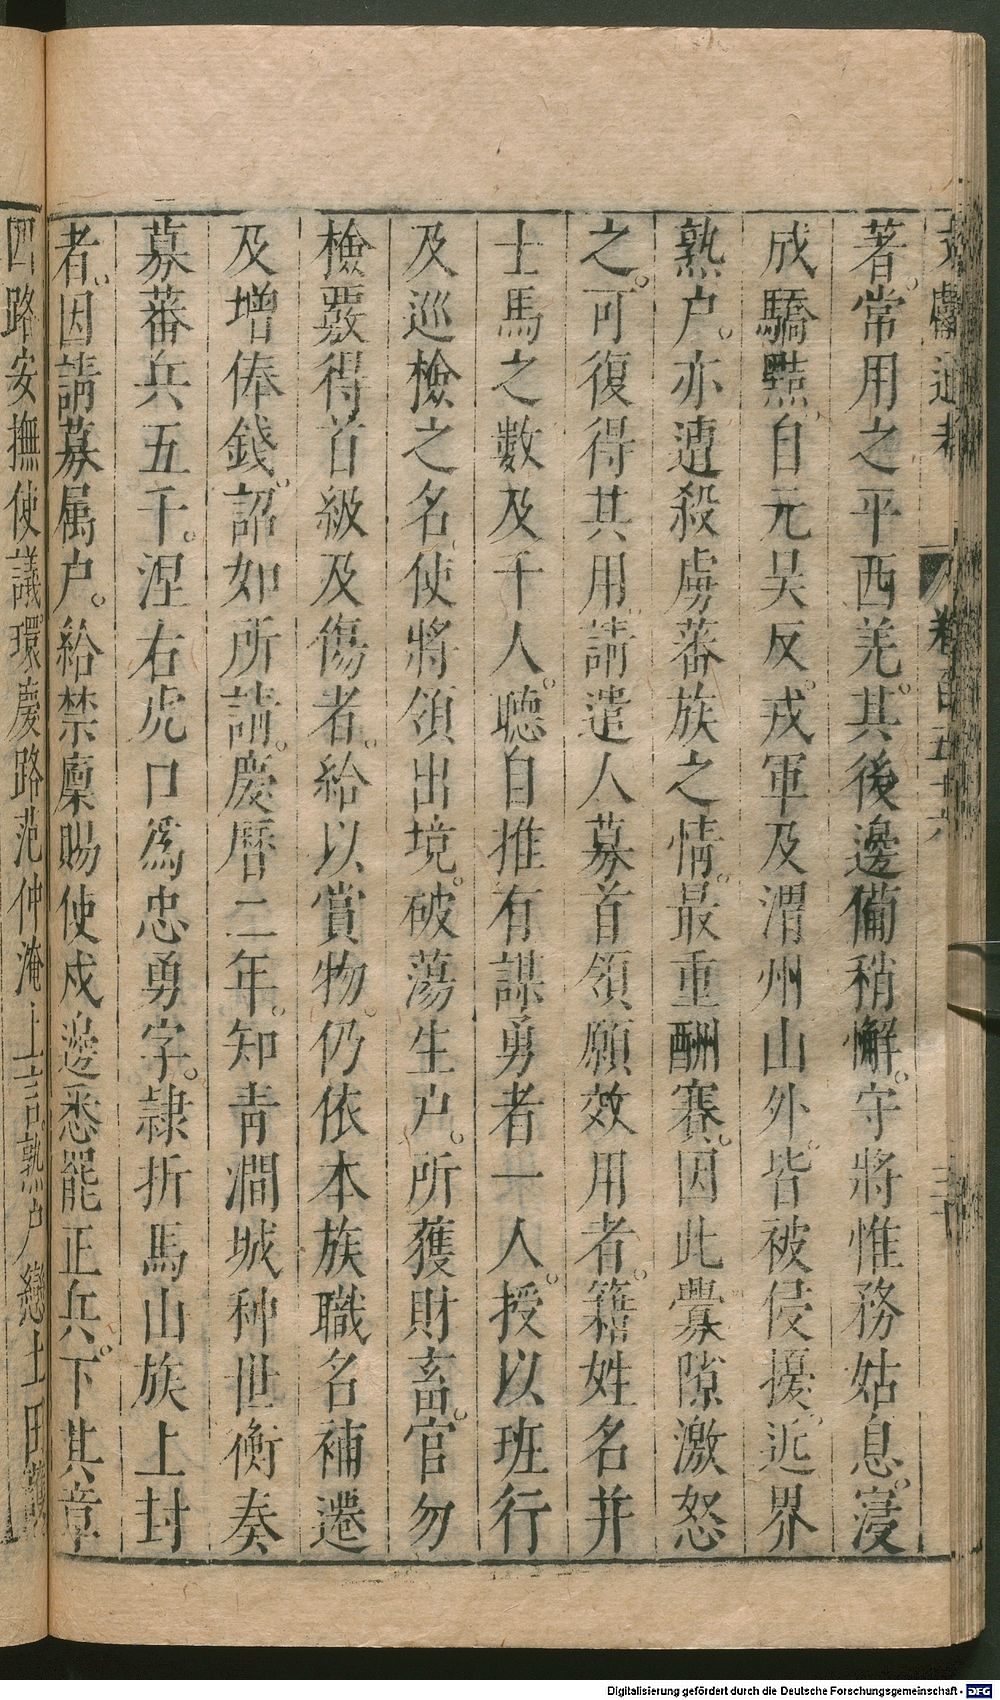 文獻通考 卷百五十六 三十
著。常用之平西羌。其後邊備稍懈。守將惟務姑息。寖
成驕黠。自元昊反。戎軍及渭州山外。皆被侵擾。近界
熟户。亦遭殺虜。蕃族之情。最重酬賽。因此釁隙激怒
之。可復得其用。請遣人募首領願效用者。籍姓名并
士馬之數。及千人。聽自推有謀勇者一人。授以班行
及巡檢之名。使將領出境。破蕩生户。所獲財畜。官勿
檢覈。得首級及傷者。給以賞物。仍依本族職名補遷
及增俸錢。詔如所請。慶曆二年。知青澗城种世衡奏
募蕃兵五千。涅右虎口爲忠勇字。隷折馬山族上封
者。因請募属户。給禁廩賜使戍邊悉罷正兵。下其章
四路安撫使議。環慶路范仲淹上言。熟户戀土田護
Digitalisierung gefördert durch die Deutsche Forschungsgemeinschaft - DFG